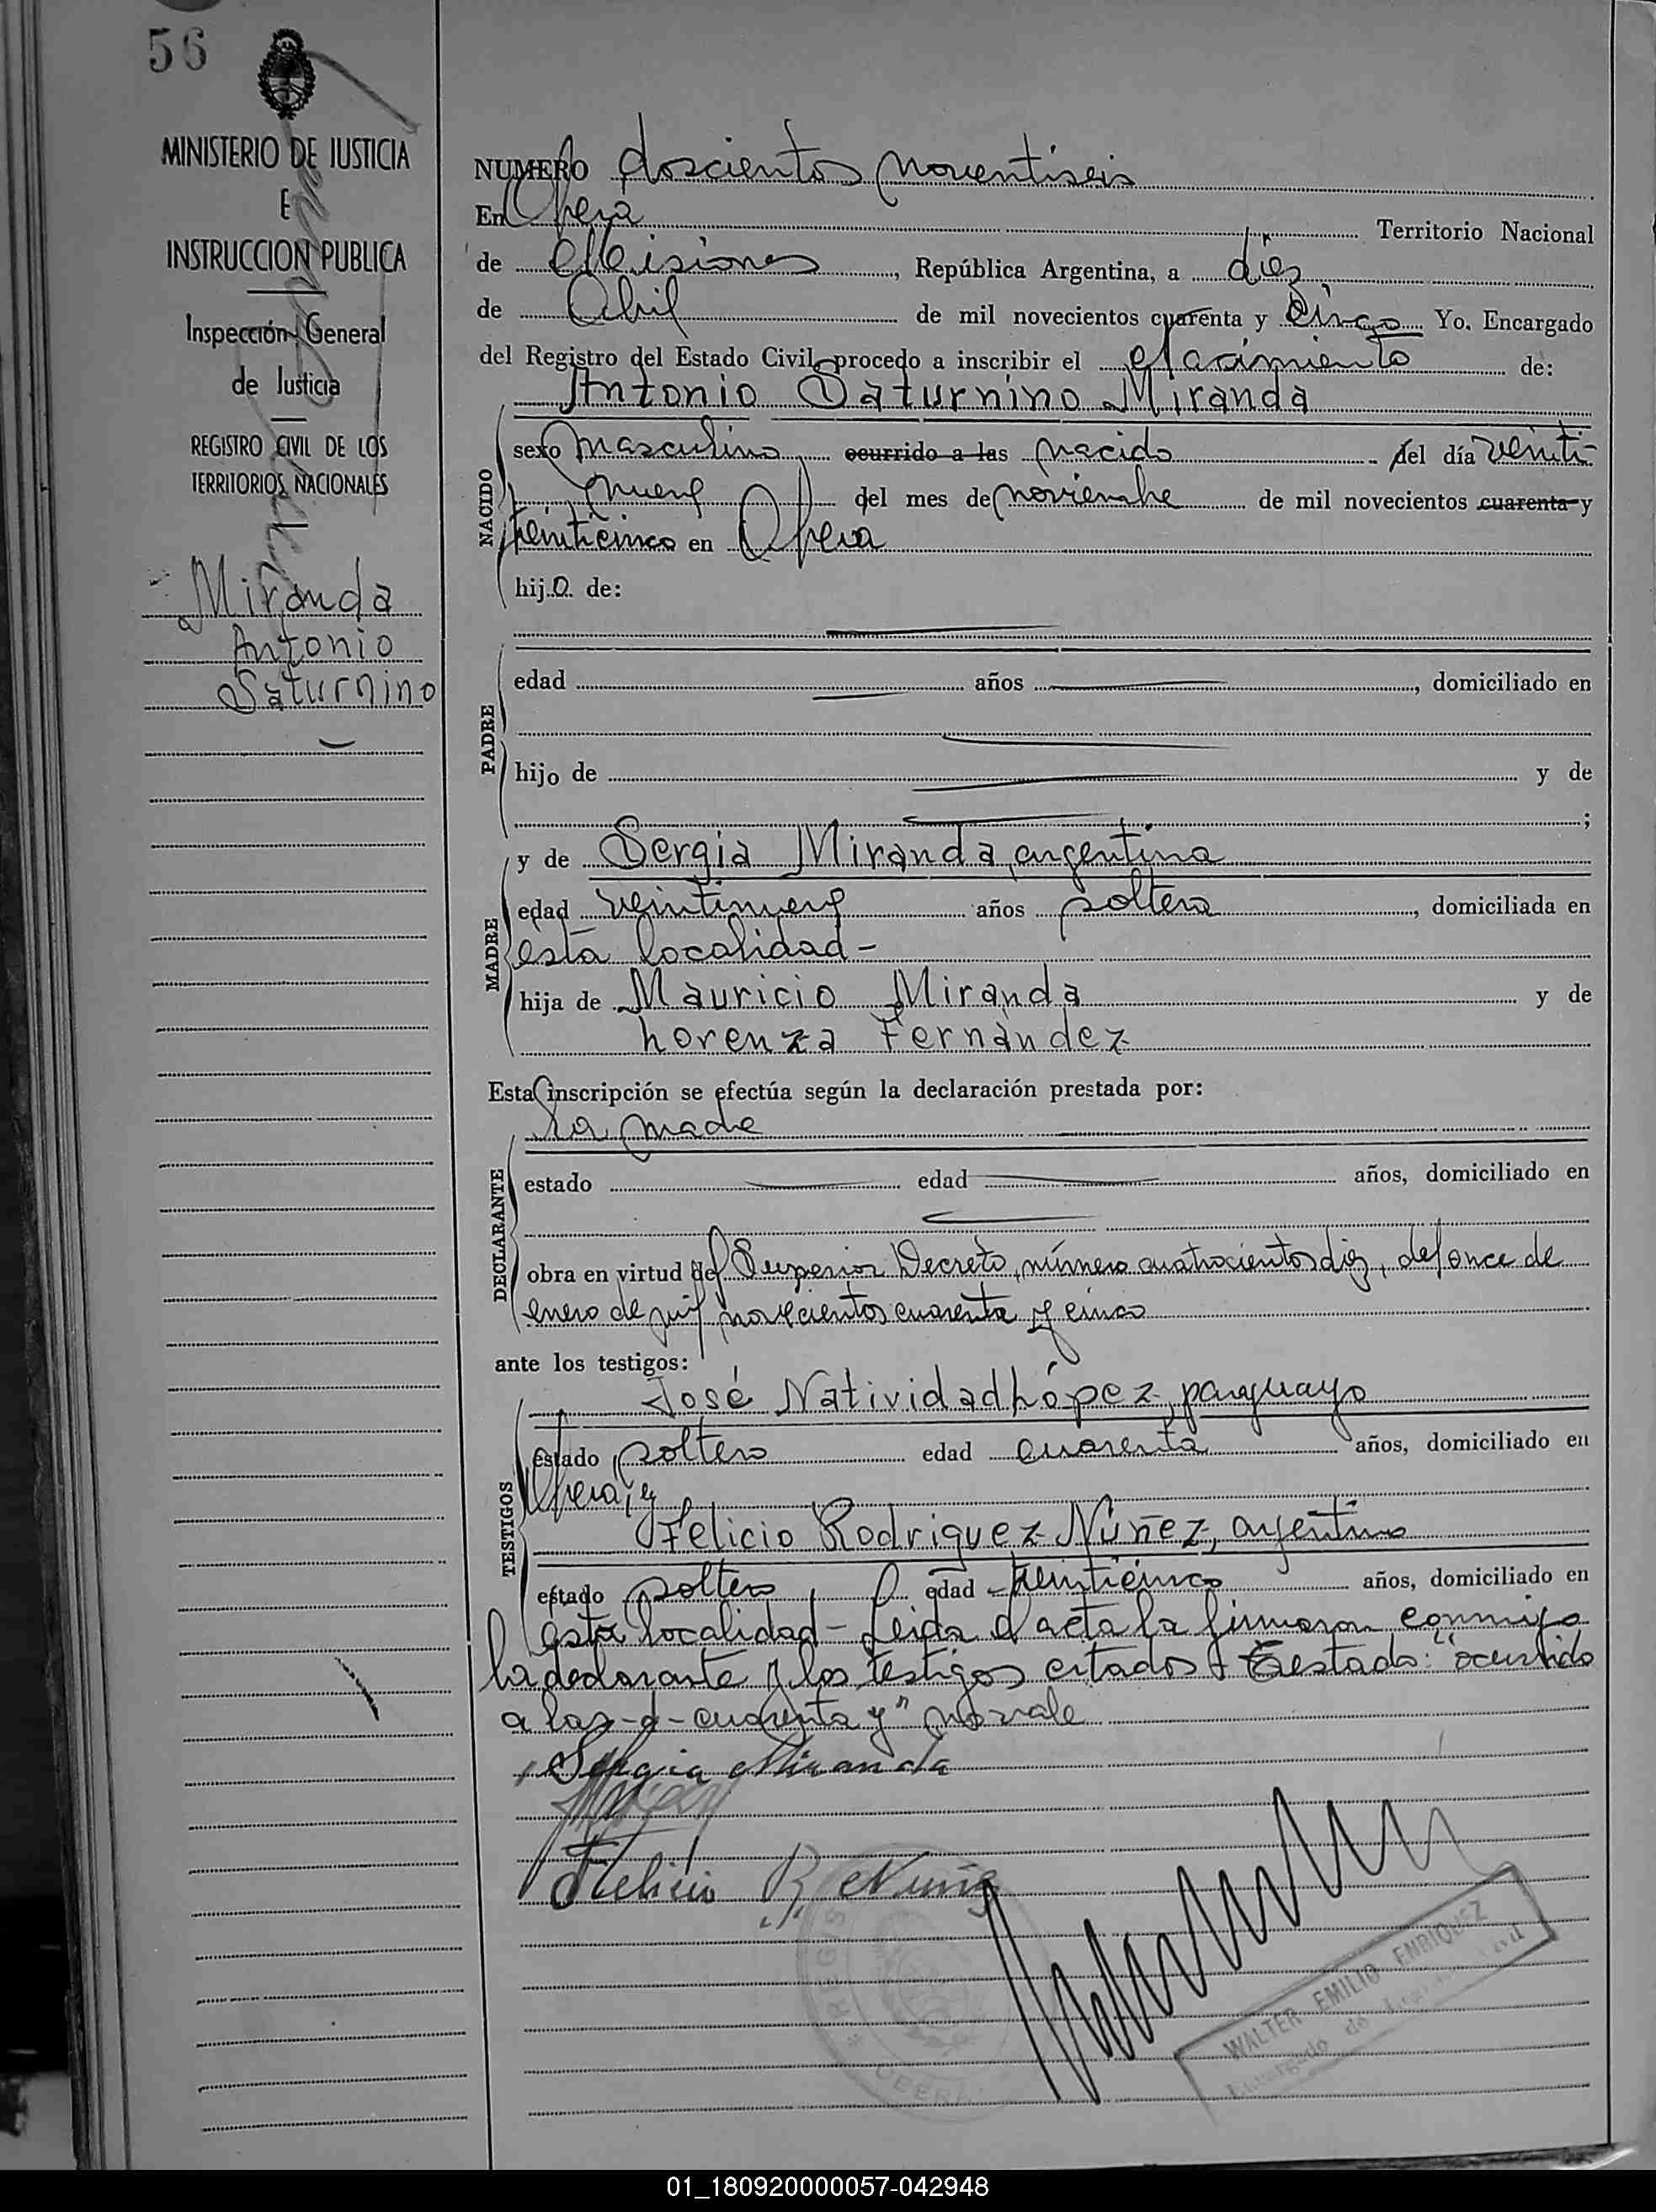 56
MINISTERIO DE JUSTICIA
E
INSTRUCCION PUBLICA
Inspección General
de Justicia
REGISTRO CIVIL DE LOS
TERRITORIOS NACIONALES
Miranda
Antonio
Saturnino
NUMERO doscientos noventiseis
En Obera Territorio Nacional
de Misiones, República Argentina, a diez
de Abril de mil novecientos cuarenta y cinco Yo, Encargado
del Registro del Estado Civil, procedo a inscribir el Nacimiento de:
Antonio Saturnino Miranda
NACIDO
sexo masculino, ocurrido a las nacido del día venti-
nueve del mes de noviembre de mil novecientos cuarenta y
treinticinco en Obera
hijo de:
PADRE
edad años, domiciliado en
hijo de y de
;
MADRE
y de Sergia Miranda, argentina
edad veintinueve años soltera, domiciliada en
esta localidad-
hija de Mauricio Miranda y de
Lorenza Fernández
Esta inscripción se efectúa según la declaración prestada por:
la madre
DECLARANTE
estado edad años, domiciliado en
obra en virtud del Superior Decreto, número cuatrocientos diez, del once de
enero de mil novecientos cuarenta y cinco
ante los testigos:
TESTIGOS
José Natividad López, paraguayo
estado soltero edad cuarenta años, domiciliado en
Obera, y
Felicio Rodriguez Núñez, argentino
estado soltero, edad treinticinco años, domiciliado en
esta localidad- Leida el acta la firmaron conmigo
la declarante y los testigos citados - Testado: "ocurrido
a las-d-cuarenta y" no vale
Sergia Miranda
Felicio R. Nuñez
REGIS
OBERA
WALTER EMILIO ENRIQUEZ
Encargado de Registro Civil
01_180920000057-042948